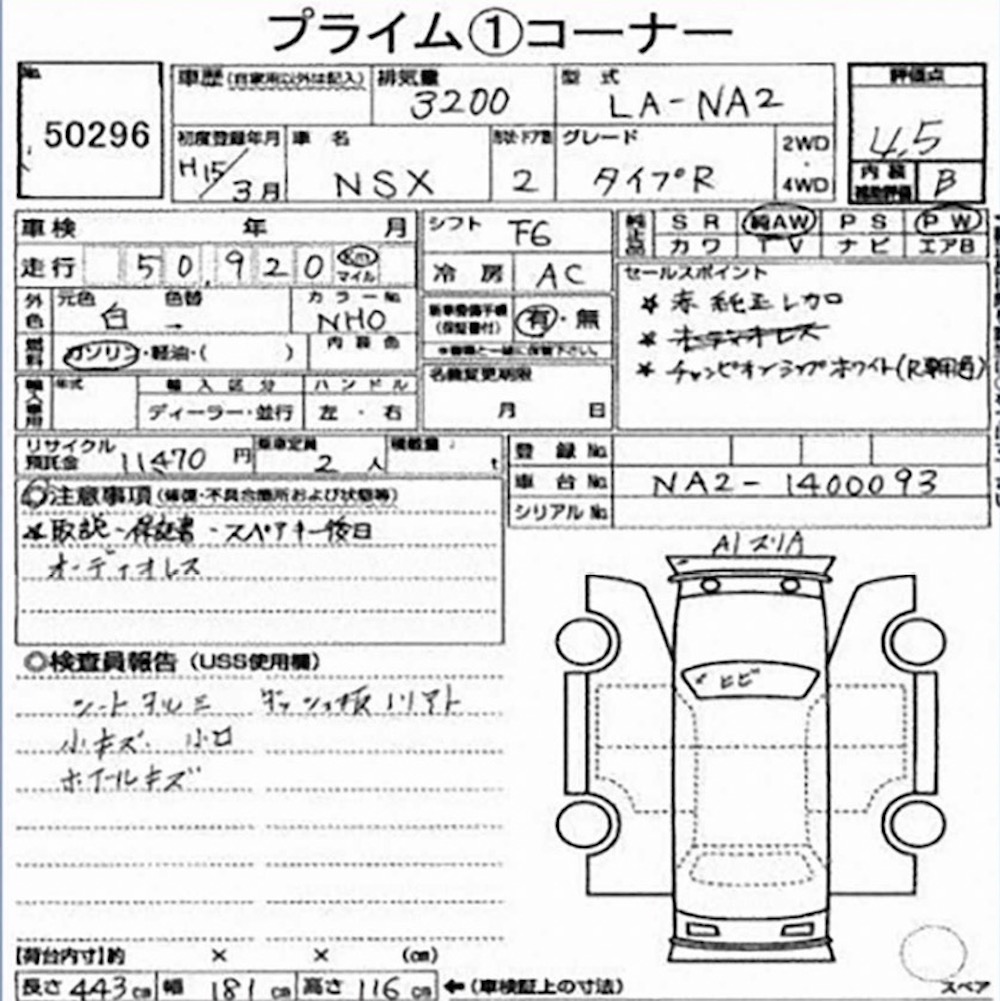 プライム①コーナー
No.
50296
車歴 (自家用以外は記入)
排気量
3200
型式
LA-NA2
評価点
4.5
内装
補助評価
B
初度登録年月
H15/3月
車名
NSX
ドア数
2
グレード
タイプR
2WD
・
4WD
車検 年 月
シフト
F6
純正品
SR 純AW PS PW
カワ TV ナビ エアB
走行
50,920
km
マイル
冷房
AC
セールスポイント
★ 赤 純正レカロ
★ オーディオレス
★ チャンピオンシップホワイト(R専用色)
外色
元色 色替
白 -
カラーNo.
NHO
新車整備手帳
(保証書付)
有・無
燃料
ガソリン・軽油・( )
内装色
輸入車用
年式
輸入区分
ハンドル
ディーラー・並行
左・右
名義変更期限
月 日
リサイクル
預託金
11470円
乗車定員
2人
積載量
t
登録No.
車台No.
NA2-1400093
シリアルNo.
◎注意事項 (修復・不具合箇所および状態等)
★取説-保証書-スペアキー後日
オーディオレス
A1 スリA
◎検査員報告 (USS使用欄)
シート
小キズ.
ホイールキズ
ヒビ
【荷台内寸】約 × × (cm)
長さ 443cm 幅 181cm 高さ 116cm ←(車検証上の寸法)
スペア